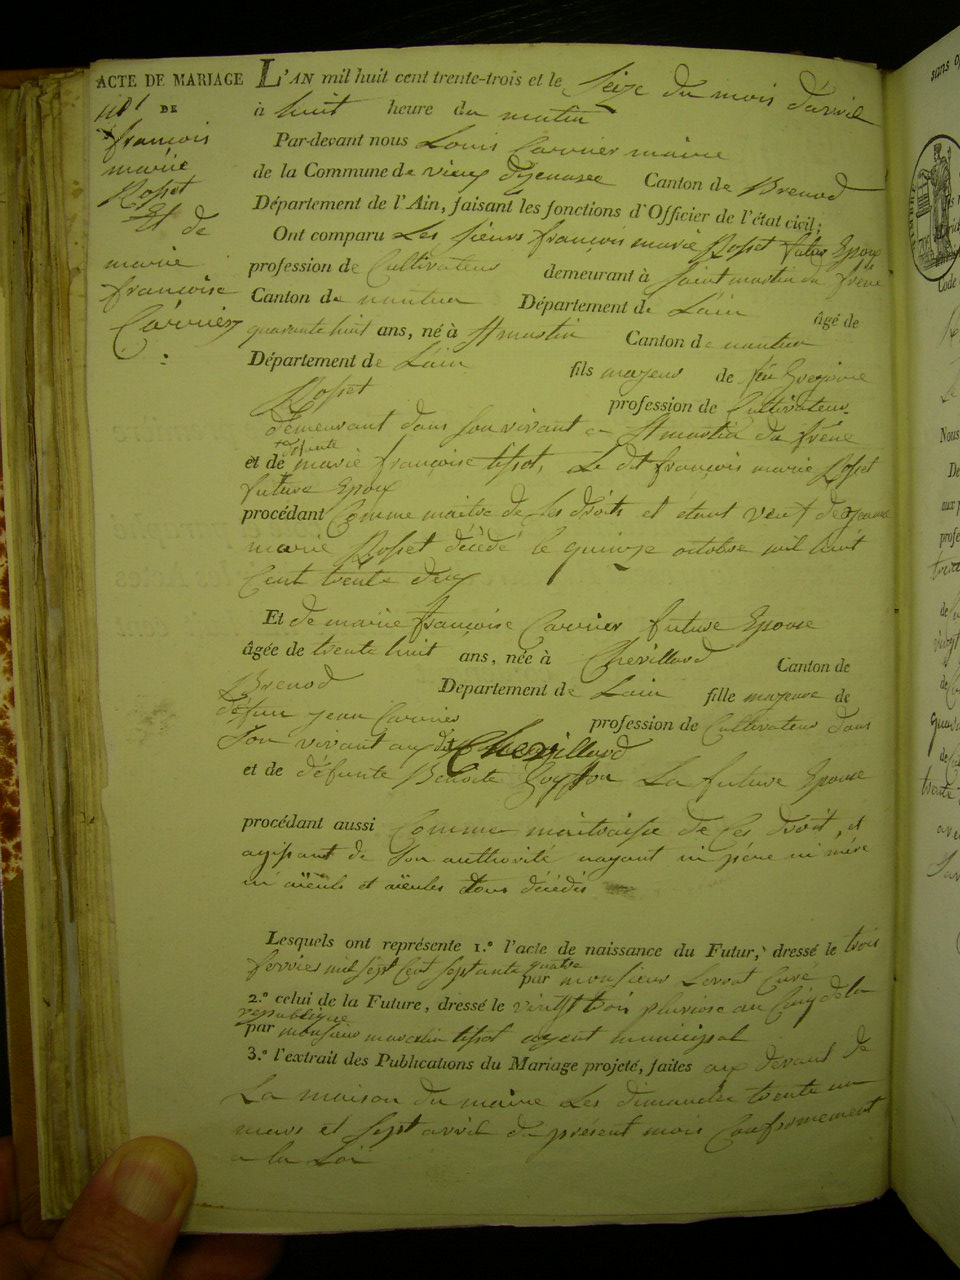 ACTE DE MARIAGE
DE
françois
marie
Rosset
Et de
marie
françoise
Carrier
L'AN mil huit cent trente-trois et le Seize du mois d'avril
à huit heure du matin
Par-devant nous Louis Carrier maire
de la Commune de vieux d'jzenave Canton de Brenod
Département de l'Ain, faisant les fonctions d'Officier de l'état civil;
Ont comparu Les Sieurs françois marie Rosset futur Epoux
profession de Cultivateur demeurant à Saint martin du frene
Canton de nantua Département de L'ain âgé de
quarante huit ans, né à St martin Canton de nantua
Département de L'ain fils majeur de feu
Rosset profession de Cultivateur
demeurant dans son vivant a St martin du frêne
et de défunte marie françoise tissot, Le dit françois marie Rosset
futur Epoux
procédant Comme maitre de ses droits et étant veuf de
marie Rosset décédé le quinze octobre mil huit
Cent trente deux
Et de marie françoise Carrier future Epouse
âgée de trente huit ans, née à Chevillard Canton de
Brenod Departement de Lain fille majeure de
defun jean Carrier profession de Cultivateur dans
Son vivant au dit Chevillard
et de défunte La future Epouse
procédant aussi Comme maitraisse de ses droit, et
agissant de Son authorité nayant ni père ni mère
ni aïeuls et aïeules tous décédés
Lesquels ont représente 1.º l'acte de naissance du Futur, dressé le trois
fevrier mil sept Cent septante quatre par monsieur Curé
2.º celui de la Future, dressé le vingt trois pluviose an Cinq de la
republique
par monsieur marcelin tissot agent municipal
3.º l'extrait des Publications du Mariage projeté, faites au devant de
La maison du maire Les dimanches trente un
mars et Sept avril du présent mois Conformement
a la Loi